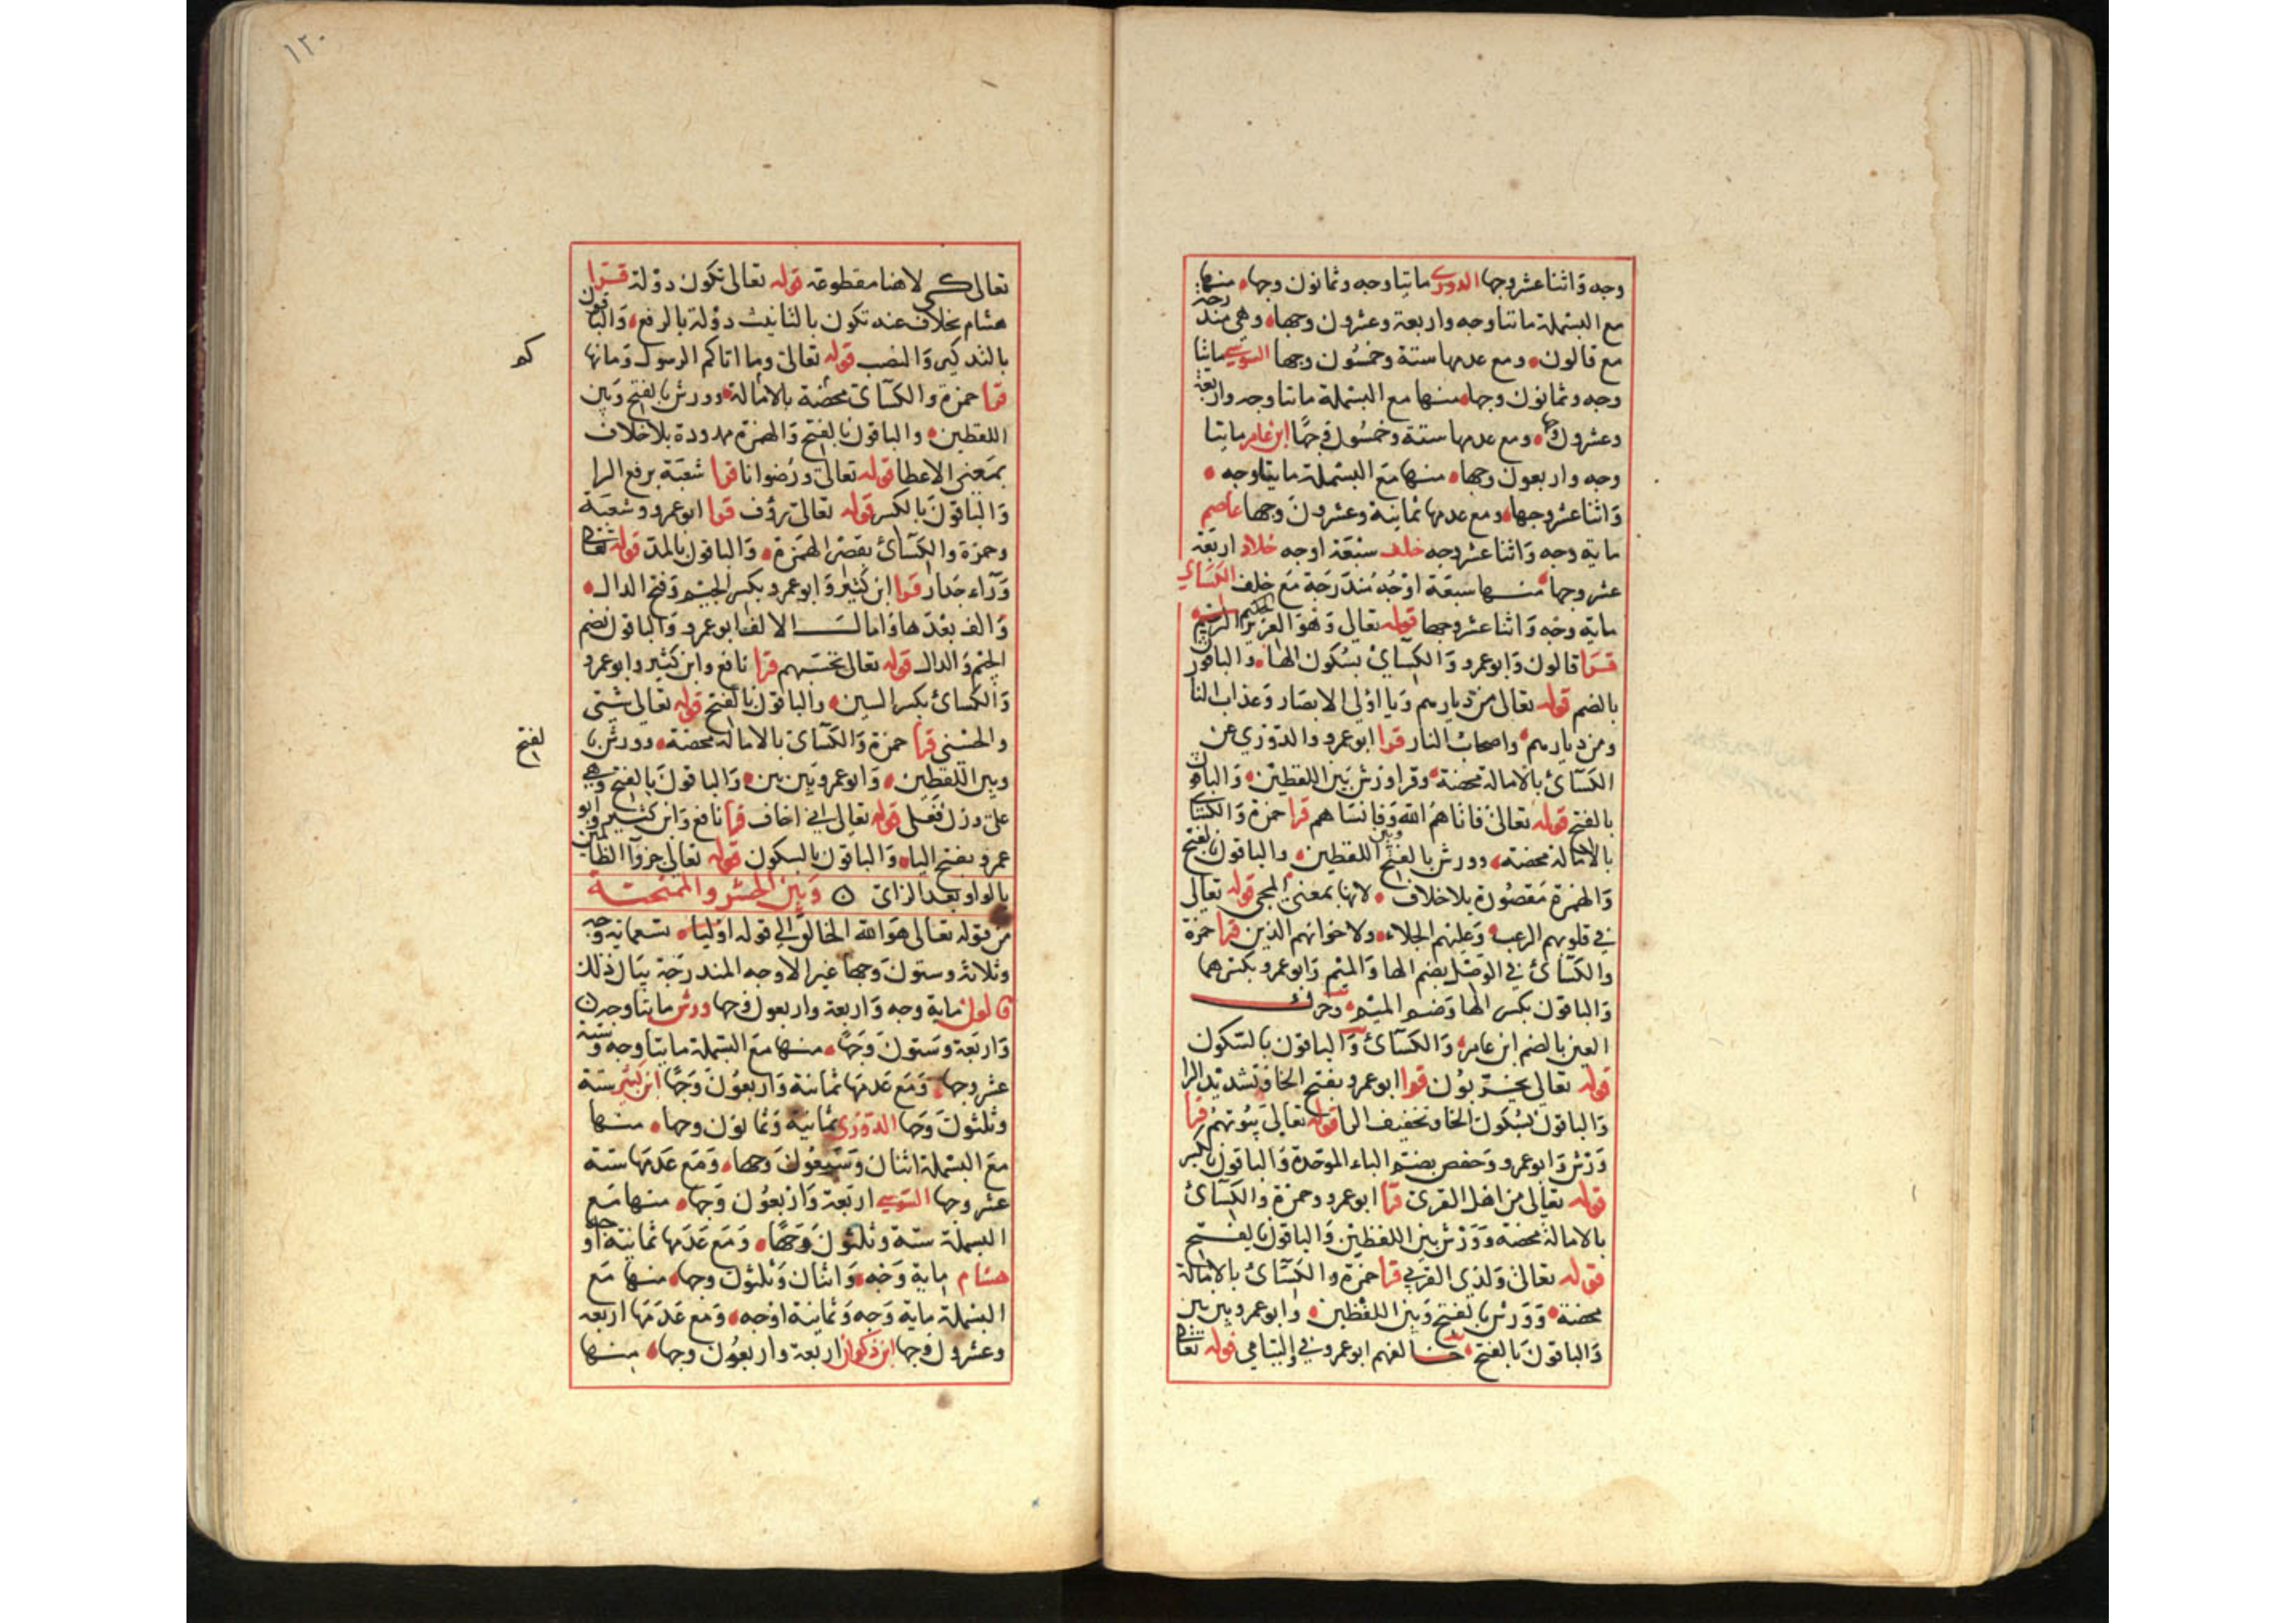 وجه واثنا عشر وجها الدوري مايتا وجه وثمانون وجها منها
مع البسملة مائتا وجه واربعة وعشرون وجها وهي مندرجة
مع قالون ومع عدمها ستة وخمسون وجها السوسي مائتا
وجه وثمانون وجها منها مع البسملة مائتا وجه واربعة
وعشرون وجها ومع عدمها ستة وخمسون وجها ابن عامر مايتا
وجه واربعون وجها منها مع البسملة مايتا وجه
واثنا عشر وجها ومع عدمها ثمانية وعشرون وجها عاصم
ماية وجه واثنا عشر وجه خلف سبعة اوجه خلاد اربعة
عشر وجها منها سبعة اوجه مندرجة مع خلف الكسائي
ماية وجه واثنا عشر وجها قوله تعالى وهو العزيز الحكيم
قرا قالون وابو عمرو والكسائي بسكون الها والباقون
بالضم قوله تعالى من ديارهم ويا اولي الابصار وعذاب النا
ومن ديارهم واصحاب النار قرا ابو عمرو والدوري عن
الكسائي بالامالة محضة وقرا ورش بين اللفظين والباقون
بالفتح قوله تعالى فاتاهم الله وفانساهم قرا حمزة والكسائي
بالامالة محضة وورش بالفتح وبين اللفظين والباقون بالفتح
والهمزة مقصورة بلا خلاف لانها بمعنى المجي قوله تعالى
في قلوبهم الرعب وعليهم الجلاء ولاخوانهم الذين قرا حمزة
والكسائي في الوصل بضم الها والميم وابو عمرو بكسرهما
والباقون بكسر الها وضم الميم وحرك
العين بالضم ابن عامر والكسائي والباقون بالسكون
قوله تعالى يخربون قرا ابو عمرو بفتح الخا وتشديد الرا
والباقون بسكون الخا وتخفيف الرا قوله تعالى بيوتهم قرا
ورش وابو عمرو وحفص بضم الباء الموحدة والباقون بالكسر
قوله تعالى من اهل القرى قرا ابو عمرو وحمزة والكسائي
بالامالة محضة وورش بين اللفظين والباقون بالفتح
قوله تعالى ولذي القربى قرا حمزة والكسائي بالامالة
محضة وورش بالفتح وبين اللفظين وابو عمرو بين بين
والباقون بالفتح خالفهم ابو عمرو في اليتامى قوله تعالى
١٢٠
تعالى كي لا هنا مقطوعة قوله تعالى تكون دولة قرا
هشام بخلاف عنه تكون بالتانيث دولة بالرفع والباقون
بالتذكير والنصب قوله تعالى وما اتاكم الرسول وما نها
كم
قرا حمزة والكسائي محضة بالامالة وورش بالفتح وبين
اللفظين والباقون بالفتح والهمزة ممدودة بلا خلاف
بمعنى الاعطا قوله تعالى ورضوانا قرا شعبة برفع الرا
والباقون بالكسر قوله تعالى رؤف قرا ابو عمرو وشعبة
وحمزة والكسائي بقصر الهمزة والباقون بالمد قوله تعالى
وراء جدار قرا ابن كثير وابو عمرو بكسر الجيم وفتح الدال
والف بعدها وامال الالف ابو عمرو والباقون بضم
الجيم والدال قوله تعالى تحسبهم قرا نافع وابن كثير وابو عمرو
والكسائي بكسر السين والباقون بالفتح قوله تعالى شتى
والحسنى قرا حمزة والكسائي بالامالة محضة وورش با
لفتح
وبين اللفظين وابو عمرو بين بين والباقون بالفتح وهي
على وزن فعلى قوله تعالى اني اخاف قرا نافع وابن كثير وابو
عمرو بفتح الياء والباقون بالسكون قوله تعالى جزوآ الظالمين
بالواو بعد الزاي وبين الحشر والممتحنة
من قوله تعالى هو الله الخالق الى قوله اولياء تسعماية وجه
وثلاثة وستون وجها غير الاوجه المندرجة بيان ذلك
قالون ماية وجه واربعة واربعون وجها ورش مايتا وجه
واربعة وستون وجها منها مع البسملة مايتا وجه وستة
عشر وجها ومع عدمها ثمانية واربعون وجها ابن كثير ستة
وثلثون وجها الدوري ثمانية وثمانون وجها منها
مع البسملة اثنان وسبعون وجها ومع عدمها ستة
عشر وجها السوسي اربعة واربعون وجها منها مع
البسملة ستة وثلثون وجها ومع عدمها ثمانية اوجه
هشام ماية وجه واثنان وثلثون وجها منها مع
البسملة ماية وجه وثمانية اوجه ومع عدمها اربعة
وعشرون وجها ابن ذكوان اربعة واربعون وجها منها